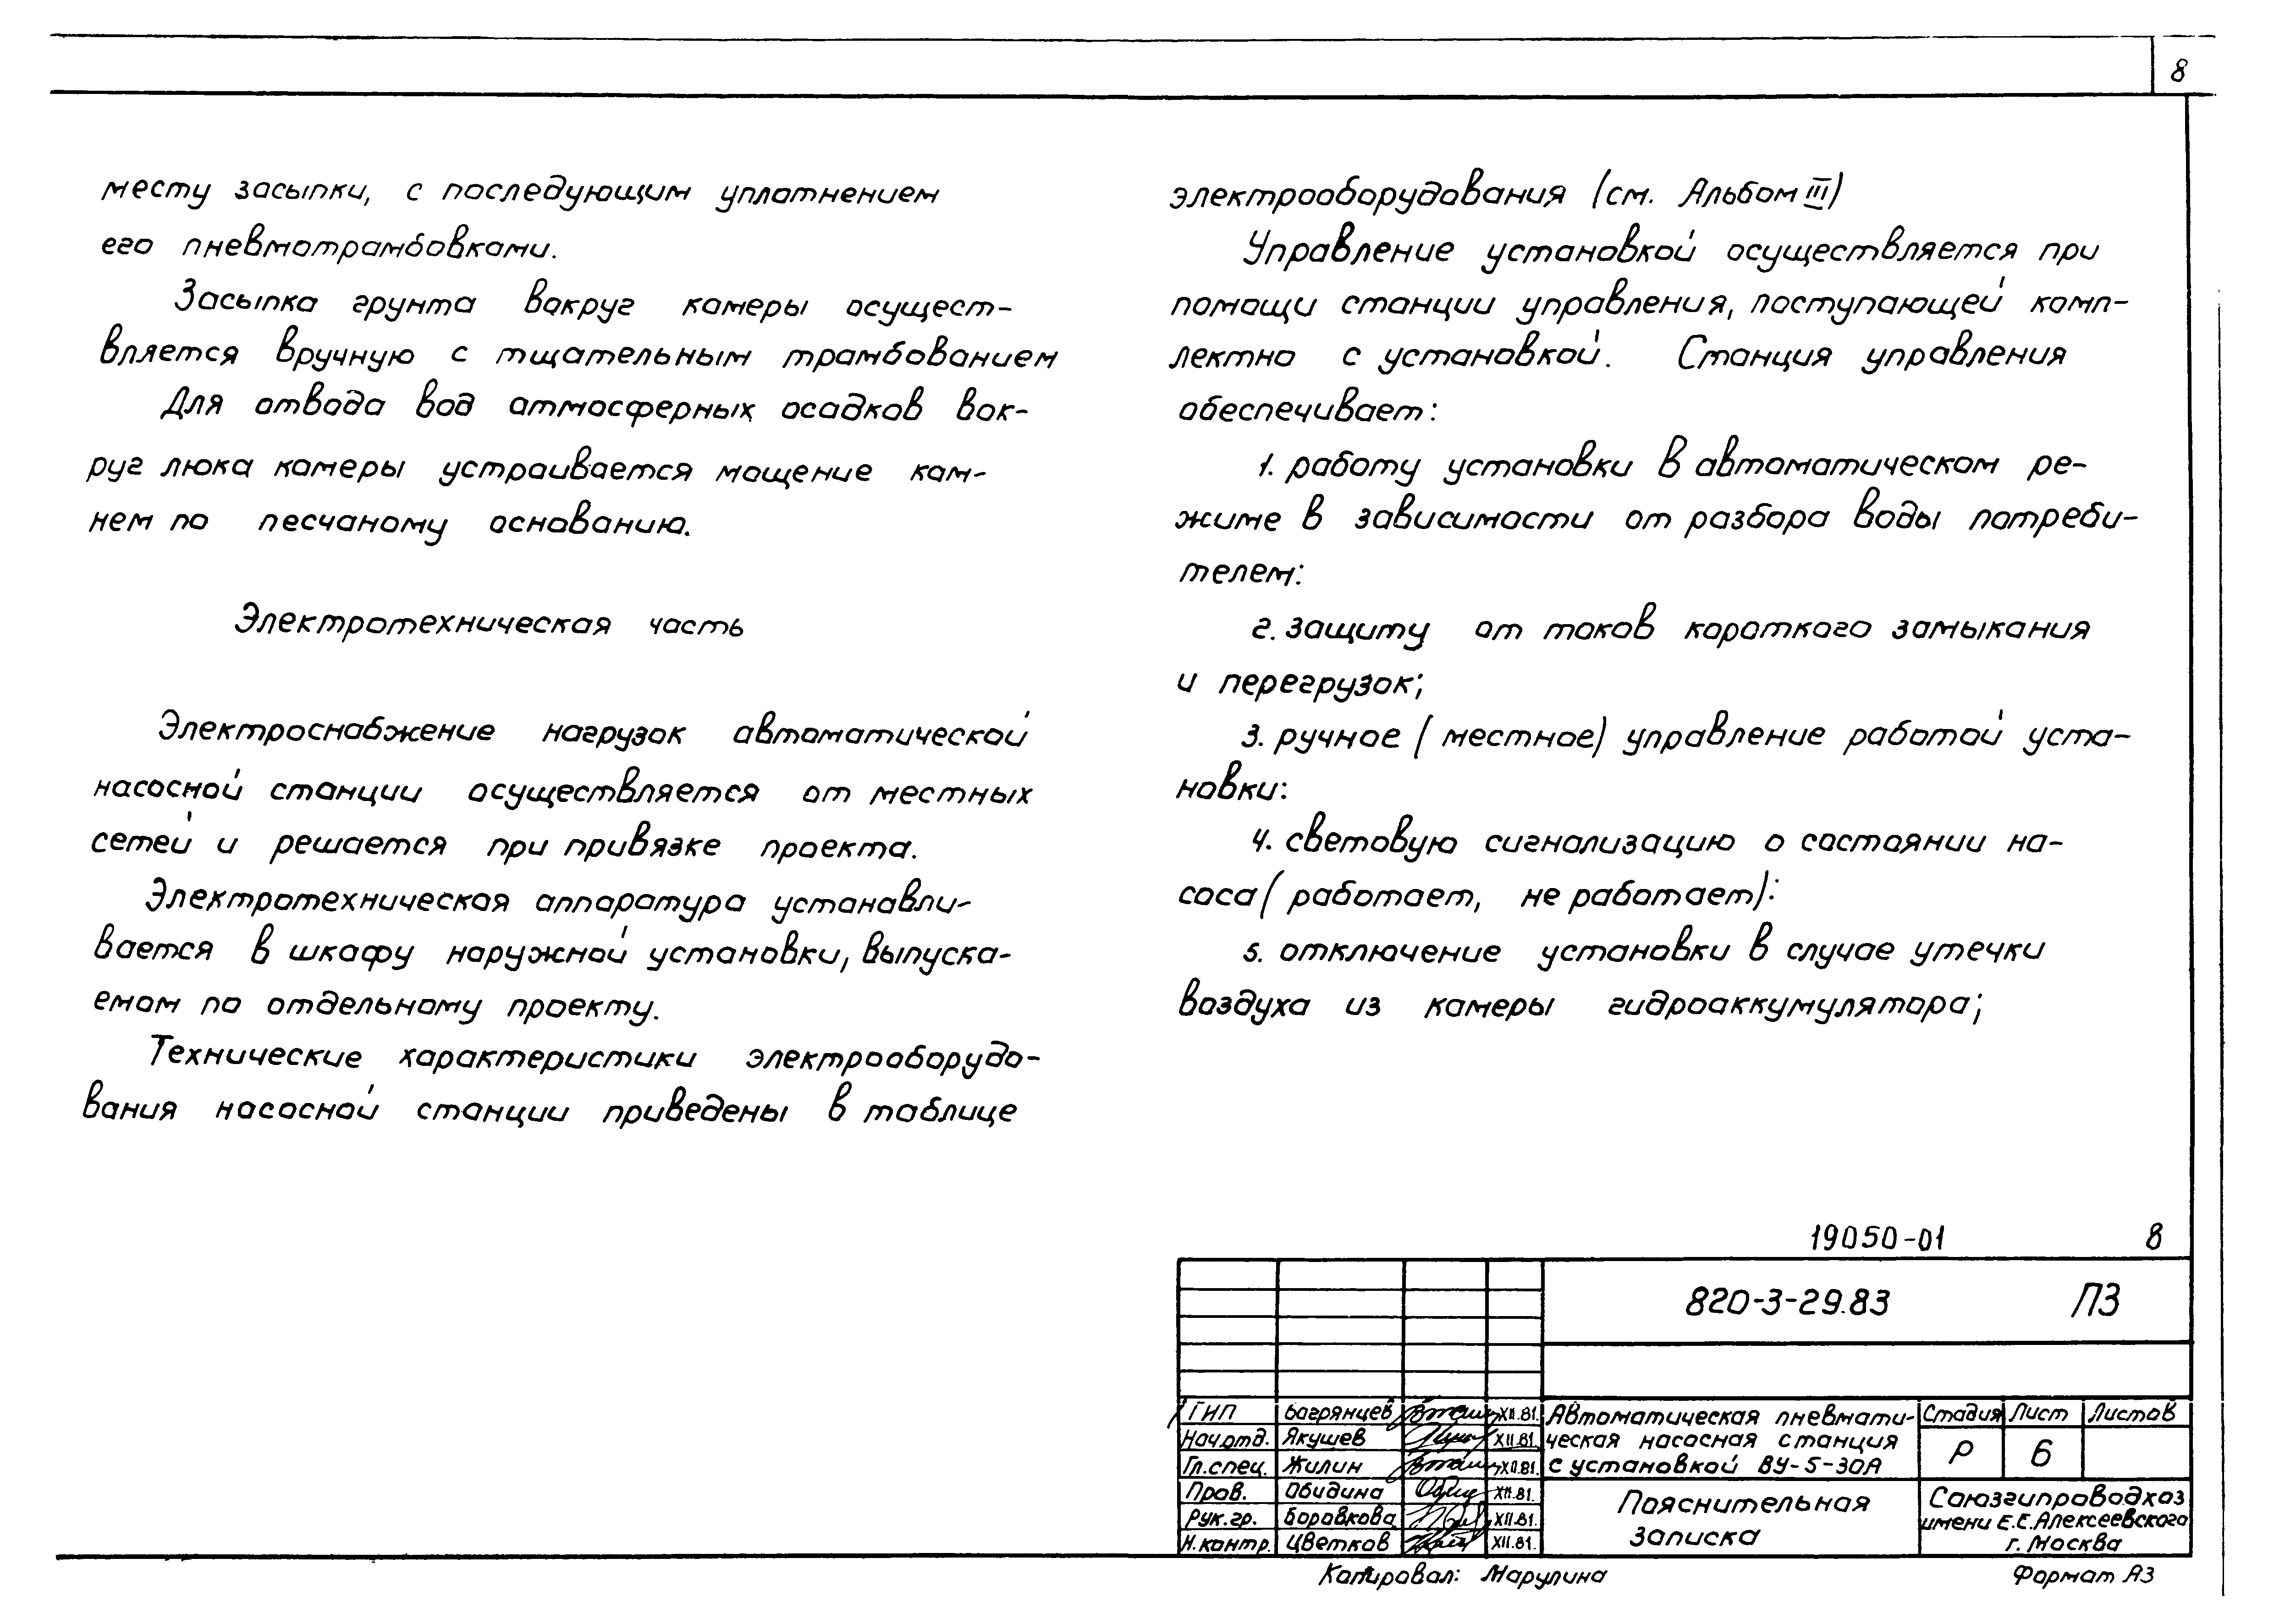 8
месту засыпки, с последующим уплотнением
его пневмотрамбовками.
Засыпка грунта вокруг камеры осущест-
вляется вручную с тщательным трамбованием
Для отвода вод атмосферных осадков вок-
руг люка камеры устраивается мощение кам-
нем по песчаному основанию.
Электротехническая часть
Электроснабжение нагрузок автоматической
насосной станции осуществляется от местных
сетей и решается при привязке проекта.
Электротехническая аппаратура устанавли-
вается в шкафу наружной установки, выпуска-
емом по отдельному проекту.
Технические характеристики электрооборудо-
вания насосной станции приведены в таблице
электрооборудования (см. Альбом III)
Управление установкой осуществляется при
помощи станции управления, поступающей комп-
лектно с установкой. Станция управления
обеспечивает:
1. работу установки в автоматическом ре-
жиме в зависимости от разбора воды потреби-
телем:
2. защиту от токов короткого замыкания
и перегрузок;
3. ручное (местное) управление работой уста-
новки:
4. световую сигнализацию о состоянии на-
соса (работает, не работает):
5. отключение установки в случае утечки
воздуха из камеры гидроаккумулятора;
19050-01 8
820-3-29.83 ПЗ
ГИП Багрянцев XII.81.
Нач.отд. Якушев XII.81.
Гл.спец. Жилин XII.81.
Пров. Обидина XII.81.
Рук.гр. Боровкова XII.81.
Н.контр. Цветков XII.81.
Автоматическая пневмати-
ческая насосная станция
с установкой ВУ-5-30А
Стадия Лист Листов
Р 6
Пояснительная
записка
Союзгипроводхоз
имени Е.Е.Алексеевского
г. Москва
Копировал: Марулина
Формат А3